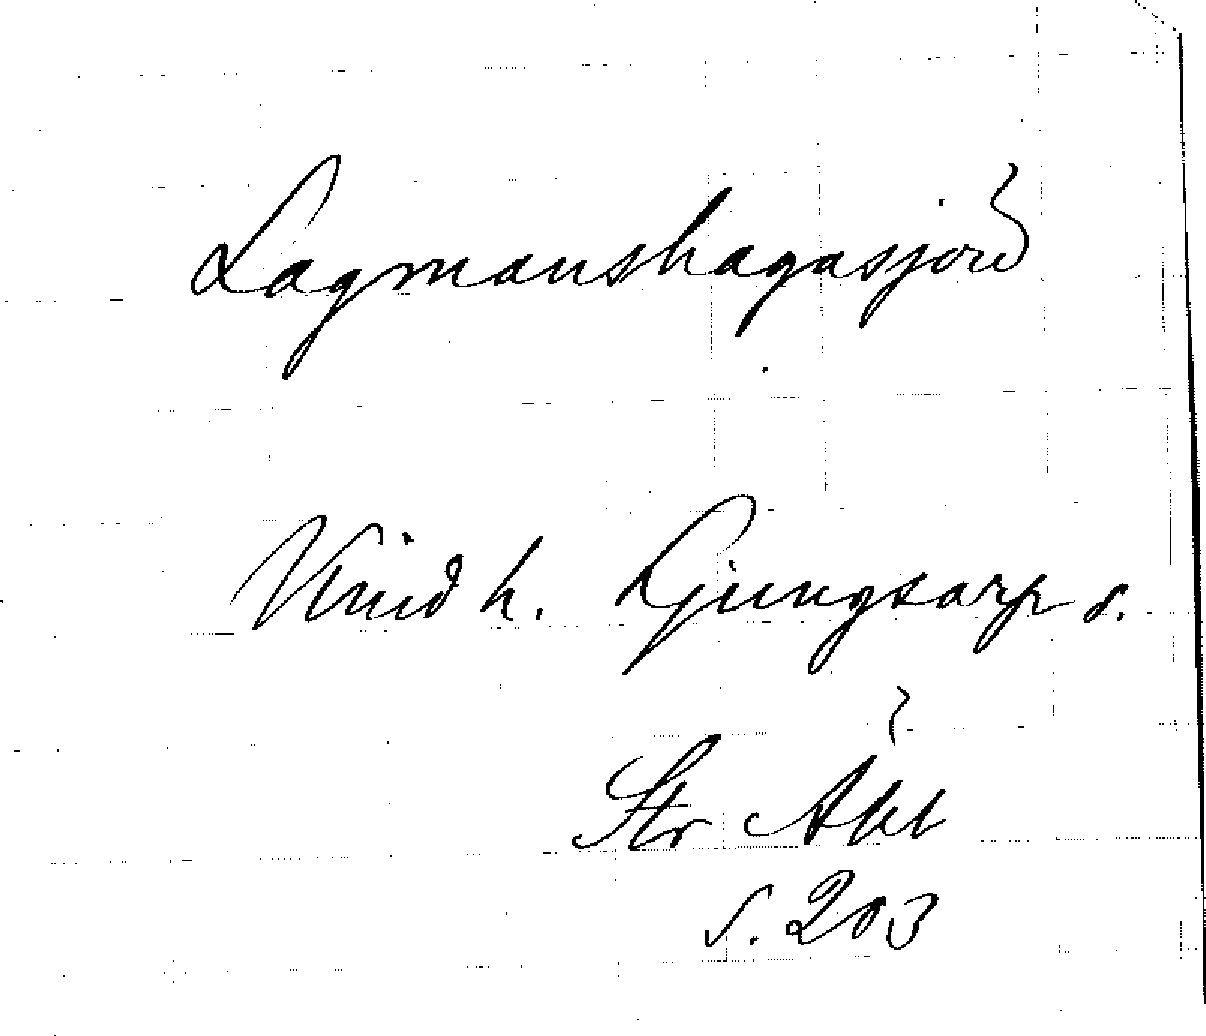 Lagmanshagasjord
Kind h. Ljungsarp s.
Str Åkt
s. 203